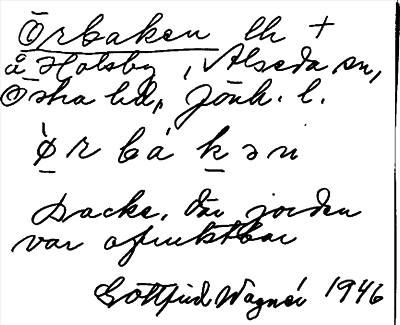 Örbaken lh +
å Holsby, Alseda sn,
Östra hd, Jönk. l.
ø̀ r b á k ə n
backe, där jorden
var ofruktbar
Gottfrid Wagnér 1946